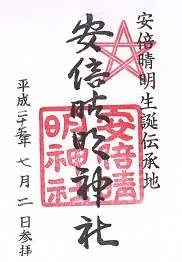 安倍晴明生誕伝承地
安倍晴明神社
安倍晴
明神社
平成二十五年七月二日参拝